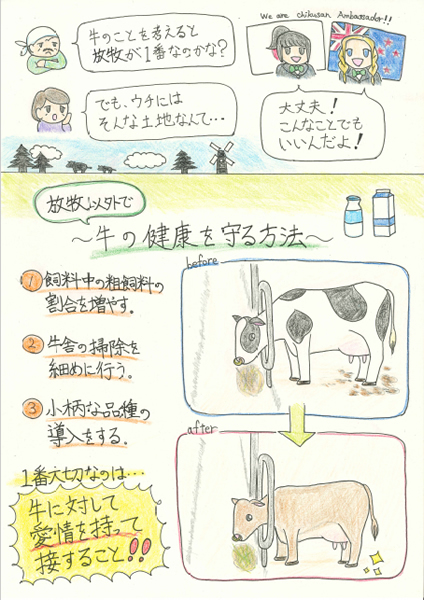 We are chikusan Ambassador!!
牛のことを考えると
放牧が1番なのかな?
でも、ウチには
そんな土地なんて…
大丈夫!
こんなことでも
いいんだよ!
放牧以外で
～牛の健康を守る方法～
① 飼料中の粗飼料の
割合を増やす。
② 牛舎の掃除を
細めに行う。
③ 小柄な品種の
導入をする。
before
after
1番大切なのは…
牛に対して
愛情を持って
接すること!!